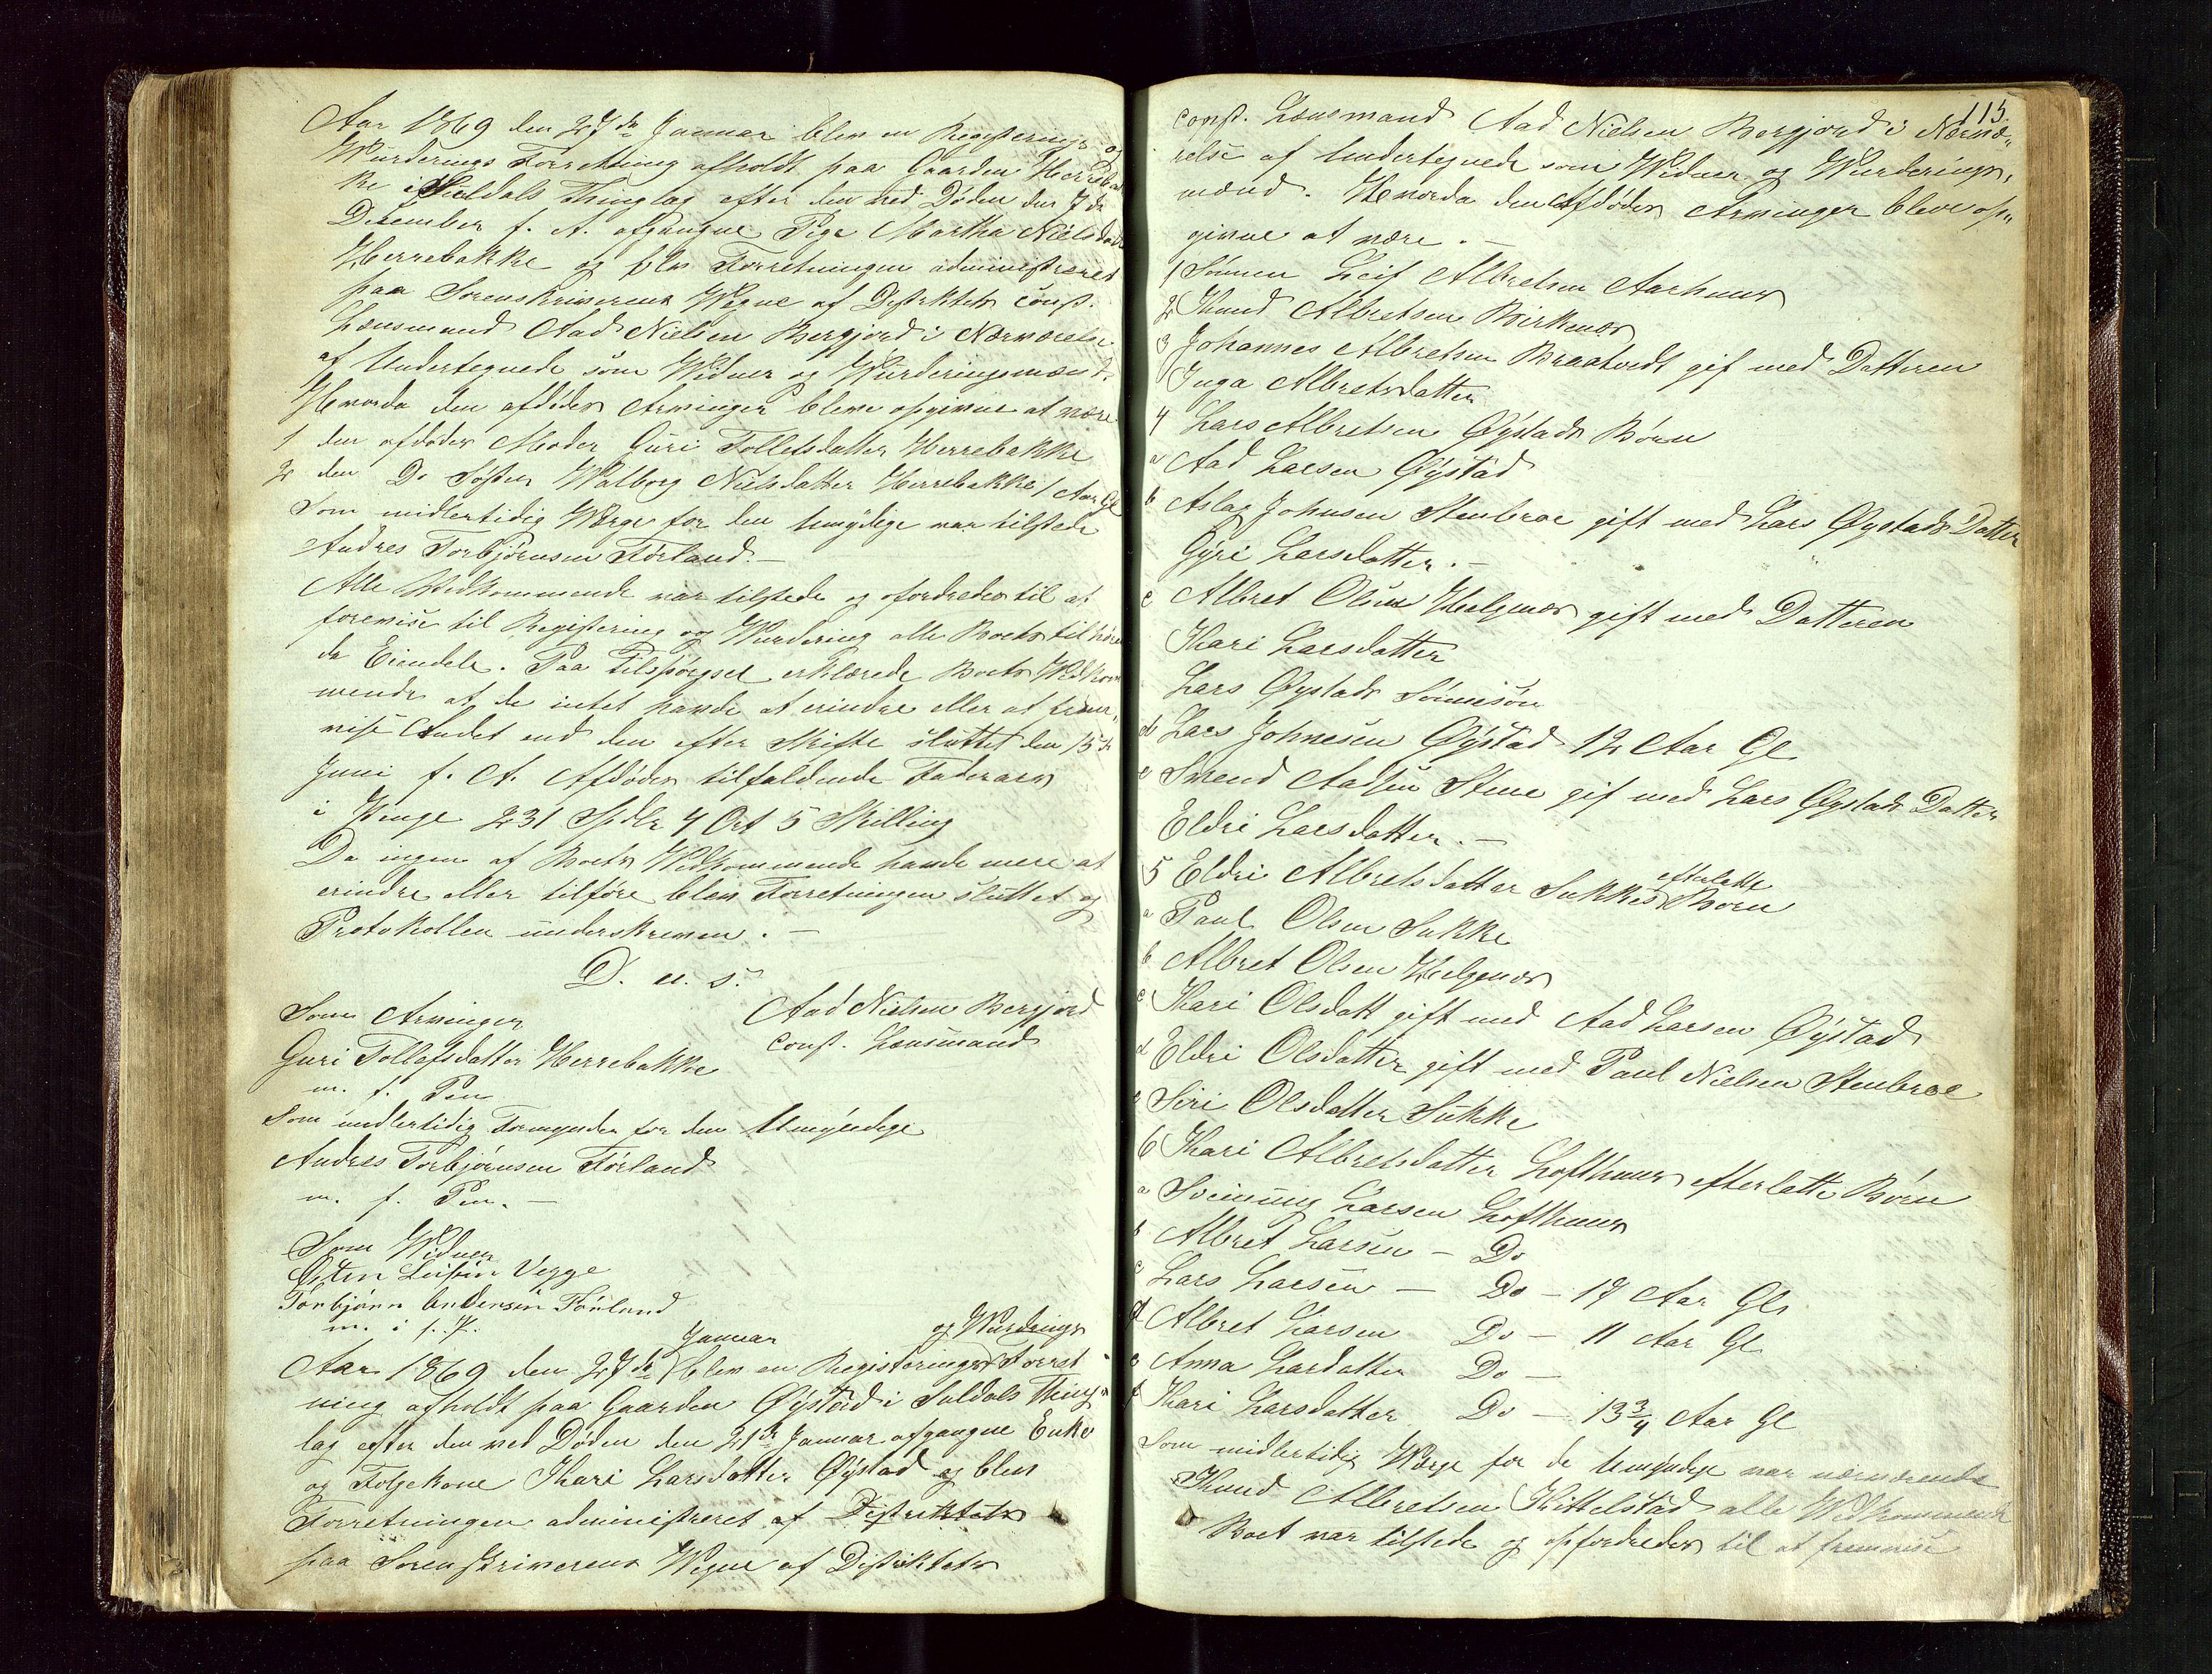 Aar 1869 den 27de Januar blev en Registerings og
Wurderings Forretning afholdt paa Gaarden Herreba
ke i Suldals Thinglag efter den ved Døden den 7de
Desember f. A. afgangne Pige Martha Nielsdatt
Herrebakke og blev Forretningen administreret
paa Sorenskriverens Wegne af Distriktets const.
Lænsmand Aad Nielsen Bergjord i Nærværelse
af Undertegnede som Widner og Wurderingsmænd.
Hvorda den afdødes Arvinger bleve opgivne at være
1 den afdødes Moder Guri Tollefsdatter Herrebakke
2 den Do Søster Walborg Nielsdatter Herrebakke 1 Aar Gl
Som midlertidig Værge for den Umyndige var tilstede
Andres Torbjørnsen Førland. –
Alle Vedkommende var tilstede og opfordredes til at
forevise til Registering og Wurdering alle Boets tilhøren
de Eiendele. Paa Tilspørgsel erklærede Boets Wedkom
mende at de intet havde at erindre eller at frem„
vise Andet end den efter Skifte sluttet den 15de
Juni f. A. Afdøde tilfaldende Faderarv
i Penge 231 Spdlr 4 Ort 5 Skilling
Da ingen af Boets Wedkommende havde mere at
erindre eller tilføre blev Forretningen sluttet og
Protokollen underskreven. –
D. u. s.
Som Arvinger
Aad Nielsen Bergjord
const. Lænsmand
Guri Tollefsdatter Herrebakke
m. f. Pen
Som midlertidig Formynder for den Umyndige
Andres Torbjørnsen Førland
m. f. Pen. –
Som Widner
Østen Leifsen Vegge
Torbjørn Andersen Førland
m. i f. P.
Januar og Wurderings
Aar 1869 den 27de blev en Registerings Forret
ning afholdt paa Gaarden Øystad i Suldals Thing
lag efter den ved Døden den 21de Januar afgangne Enke
og Følgekone Kari Larsdatter Øystad og blev
Forretningen administreret af Distriktets
paa Sorenskriverens Wegne af Distriktets
115.
const. Lænsmand Aad Nielsen Bergjord i Nærvæ„
relse af Undertegnede som Widner og Wurderings„
mænd. Hvorda den Afdødes Arvinger bleve op„
givne at være. –
1 Sønnen Leif Albretsen Aarhuus
2 Knud Albretsen Birkenæs
3 Johannes Albretsen Braatvedt gif med Datteren
Inga Albretsdatter
4 Lars Albretsen Øystads Børn
a Aad Larsen Øystad
b Aslag Johnsen Stenbroe gift med Lars Øystads Datter
Gyri Larsdatter. –
c Albret Olsen Helgenæs gift med Datteren
Kari Larsdatter
Lars Øystads Sønnesøn
d Lars Johnesen Øystad 12 Aar Gl
e Svend Aadsen Stene gif med Lars Øystads Datter
Eldri Larsdatter. –
efterlatte
5 Eldri Albretsdatter Sukkes Børn
a Paul Olsen Sukke
b Albret Olsen Helgenæs
c Kari Olsdatt gift med Aad Larsen Øystad
d Eldri Olsdatter gift med Paul Nielsen Stenbroe
e Siri Olsdatter Sukke
6 Kari Albretsdatter Lofthuus efterlatte Børn
a Sveinung Larsen Lofthuus
b Albret Larsen – Do
c Lars Larsen – Do – 17 Aar Gl
d Albret Larsen Do – 11 Aar Gl
e Anna Larsdatter Do –
f Kari Larsdatter Do – 13 3/4 Aar Gl
Som midlertidig Værge for de Umyndige var nærværende
Knud Albretsen Kittelstad alle Wedkommende
Boet var tilstede og opfordredes til at fremvise